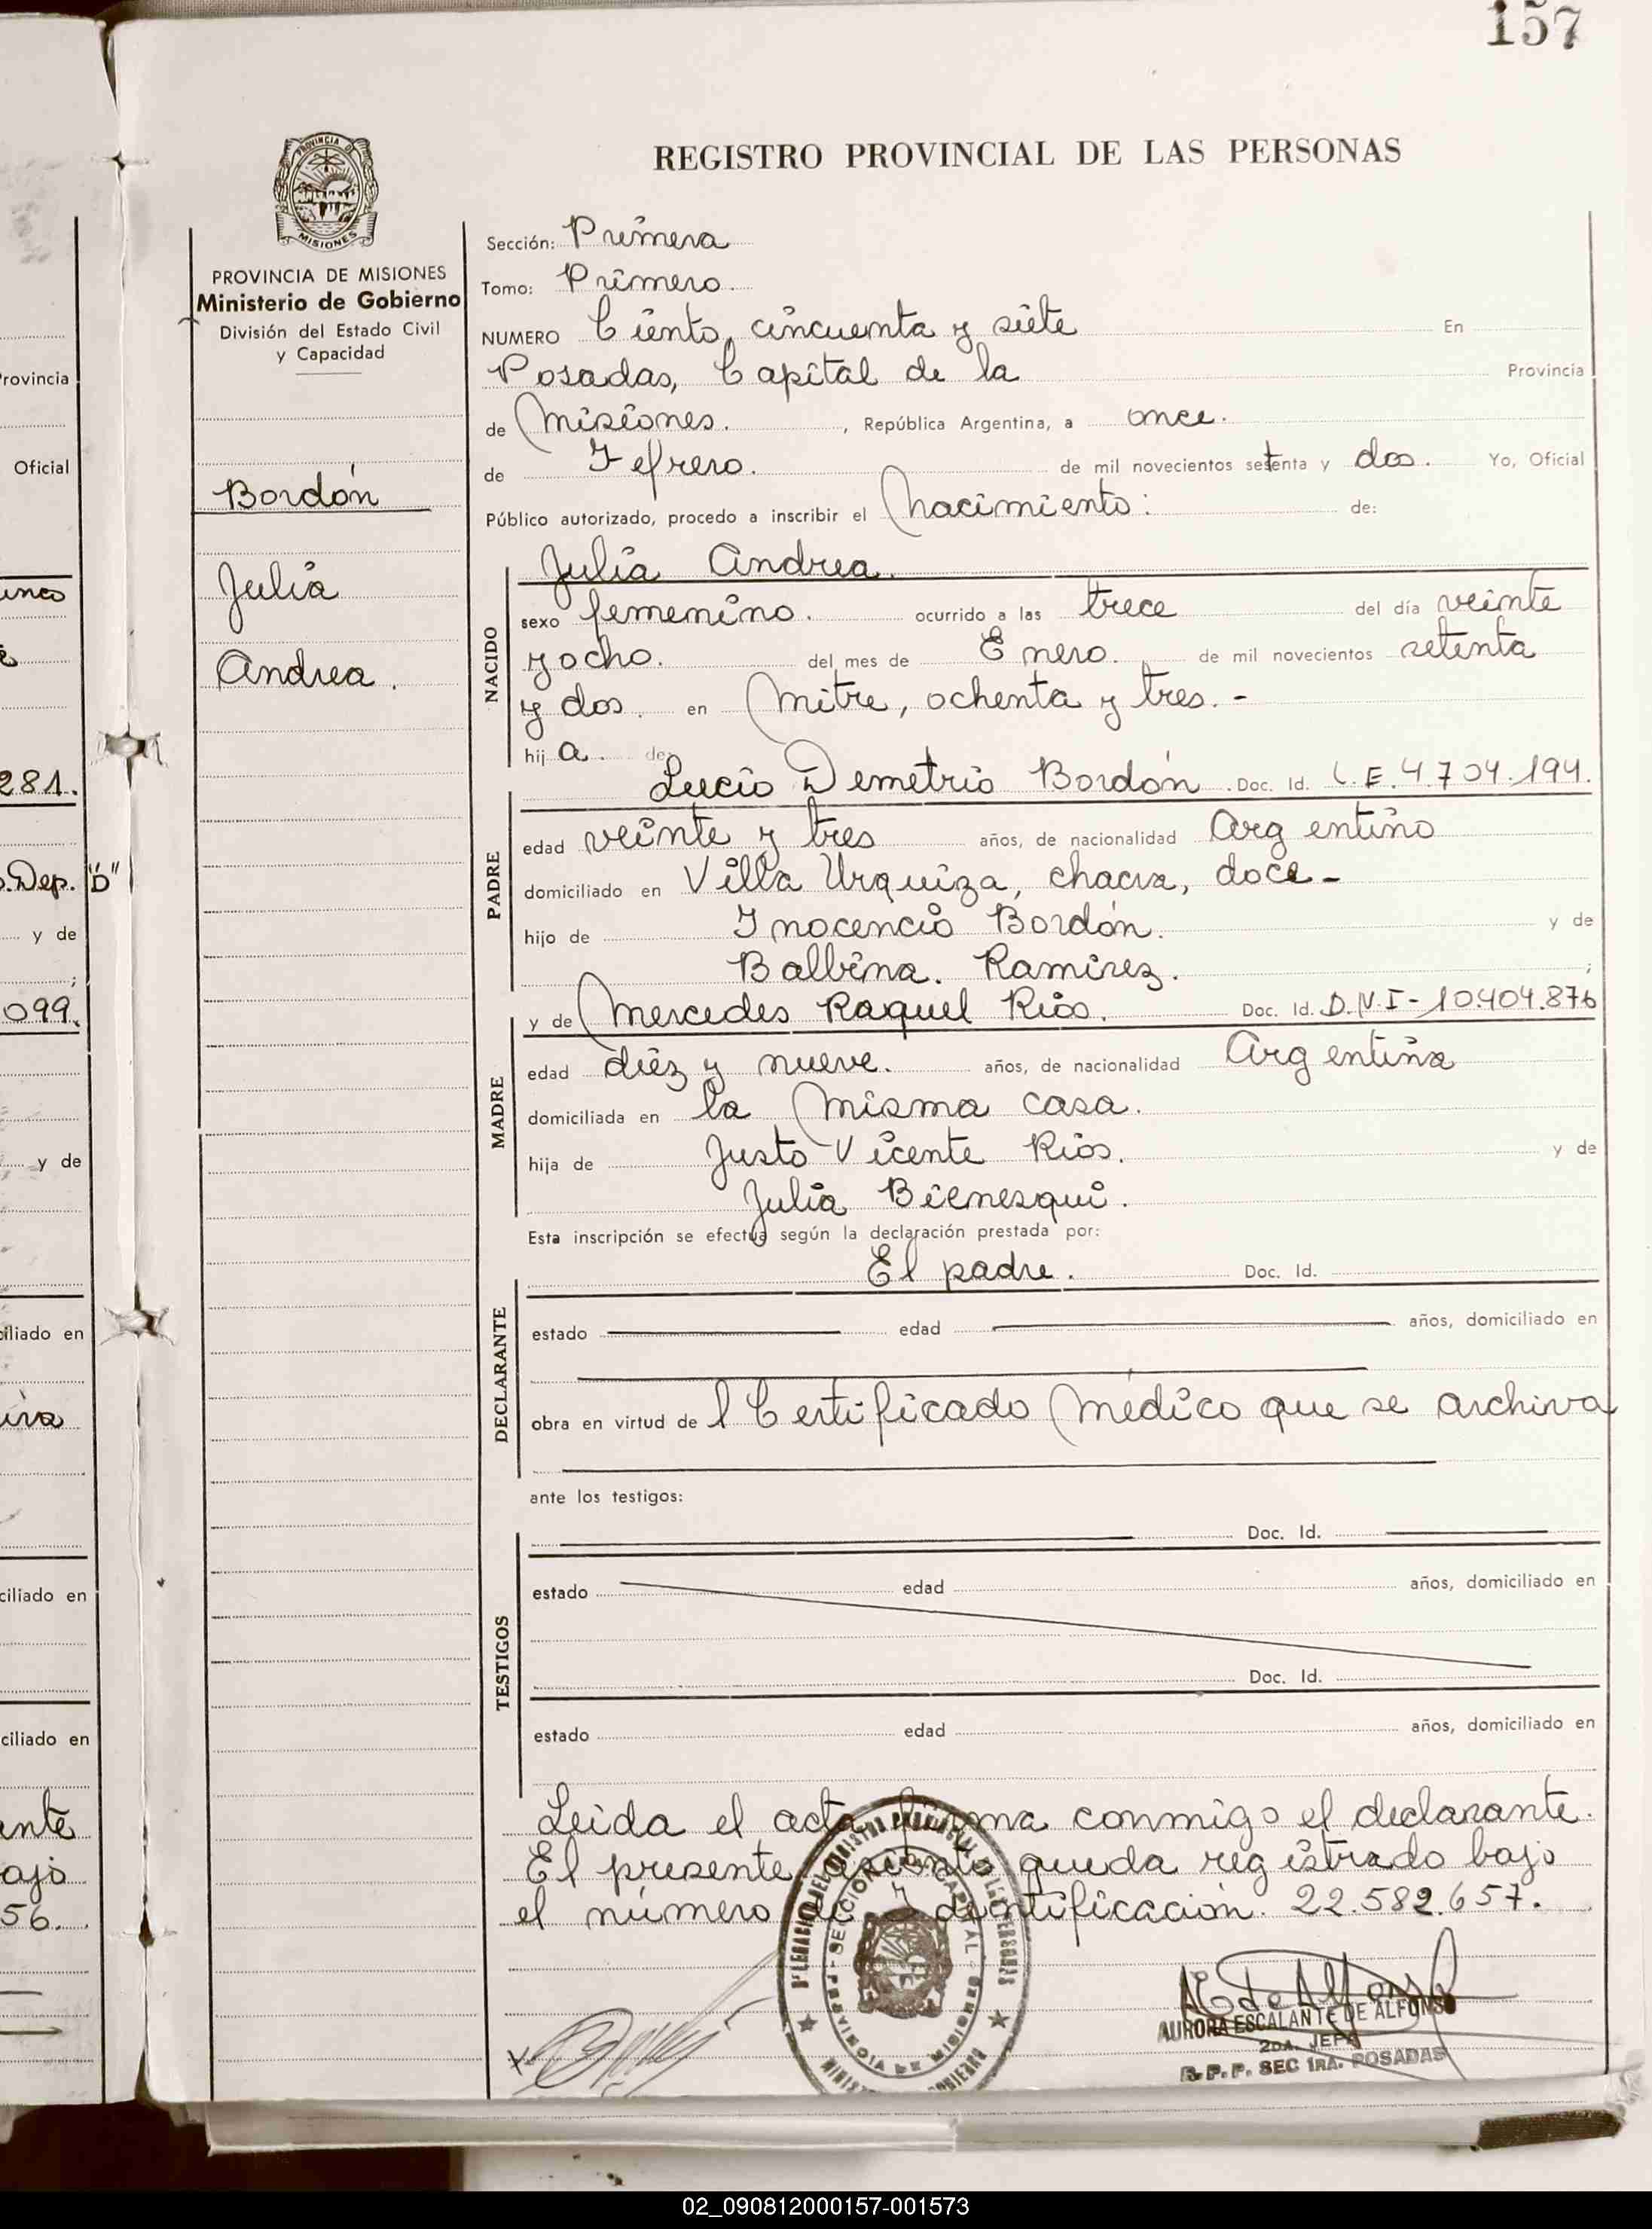 157
REGISTRO PROVINCIAL DE LAS PERSONAS
PROVINCIA DE MISIONES
PROVINCIA DE MISIONES
Ministerio de Gobierno
División del Estado Civil
y Capacidad
Bordón
Julia
Andrea.
Sección: Primera
Tomo: Primero.
NUMERO Ciento, cincuenta y siete En
Posadas, Capital de la Provincia
de Misiones. , República Argentina, a once.
de Febrero. de mil novecientos setenta y dos. Yo, Oficial
Público autorizado, procedo a inscribir el Nacimiento: de:
NACIDO
Julia Andrea.
sexo femenino. ocurrido a las trece del día veinte
y ocho. del mes de Enero. de mil novecientos setenta
y dos. en Mitre, ochenta y tres.-
hij a. de
PADRE
Lucio Demetrio Bordón. Doc. Id. L.E. 4.704.194.
edad veinte y tres años, de nacionalidad Argentino
domiciliado en Villa Urquiza, chacra, doce-
hijo de Inocencio Bordón. y de
Balbina. Ramirez. ;
MADRE
y de Mercedes Raquel Rios. Doc. Id. D.N.I-10.404.876
edad diez y nueve. años, de nacionalidad Argentina
domiciliada en la misma casa.
hija de Justo Vicente Rios. y de
Julia Bienesqui.
Esta inscripción se efectua según la declaración prestada por:
DECLARANTE
El padre. Doc. Id.
estado edad años, domiciliado en
obra en virtud de l Certificado Médico que se archiva
ante los testigos:
TESTIGOS
Doc. Id.
estado edad años, domiciliado en
Doc. Id.
estado edad años, domiciliado en
Leida el acta firma conmigo el declarante.
El presente asiento queda registrado bajo
el número de Identificación. 22.582.657.
AURORA ESCALANTE DE ALFONSO
2DA. JEFA
R.P.P. SEC 1RA. POSADAS
rovincia
Oficial
281.
.Dep. "D"
y de
;
099.
y de
iliado en
ciliado en
ciliado en
ente
ajo
56.
02_090812000157-001573